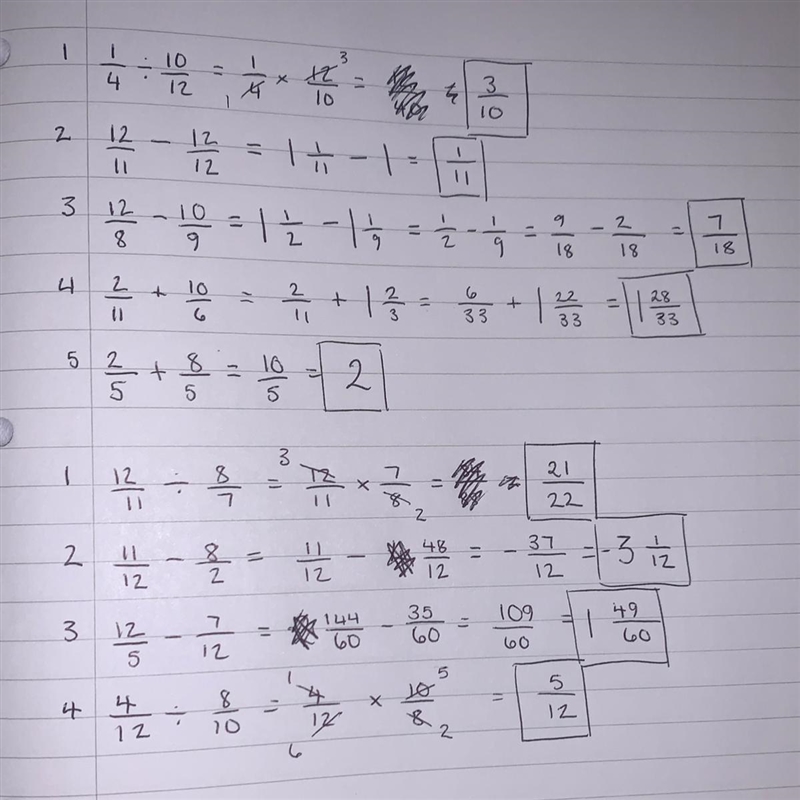 1 1/4 ÷ 10/12 = 1/4 1 × 12/10 3 = = 3/10
2 12/11 − 12/12 = 1 1/11 − 1 = 1/11
3 12/8 − 10/9 = 1 1/2 − 1 1/9 = 1/2 − 1/9 = 9/18 − 2/18 = 7/18
4 2/11 + 10/6 = 2/11 + 1 2/3 = 6/33 + 1 22/33 = 1 28/33
5 2/5 + 8/5 = 10/5 = 2
1 12/11 ÷ 8/7 = 3 12/11 × 7/8 2 = = 21/22
2 11/12 − 8/2 = 11/12 − 48/12 = −37/12 = −3 1/12
3 12/5 − 7/12 = 144/60 − 35/60 = 109/60 = 1 49/60
4 4/12 ÷ 8/10 = 1 4/12 6 × 10/8 5 2 = 5/12